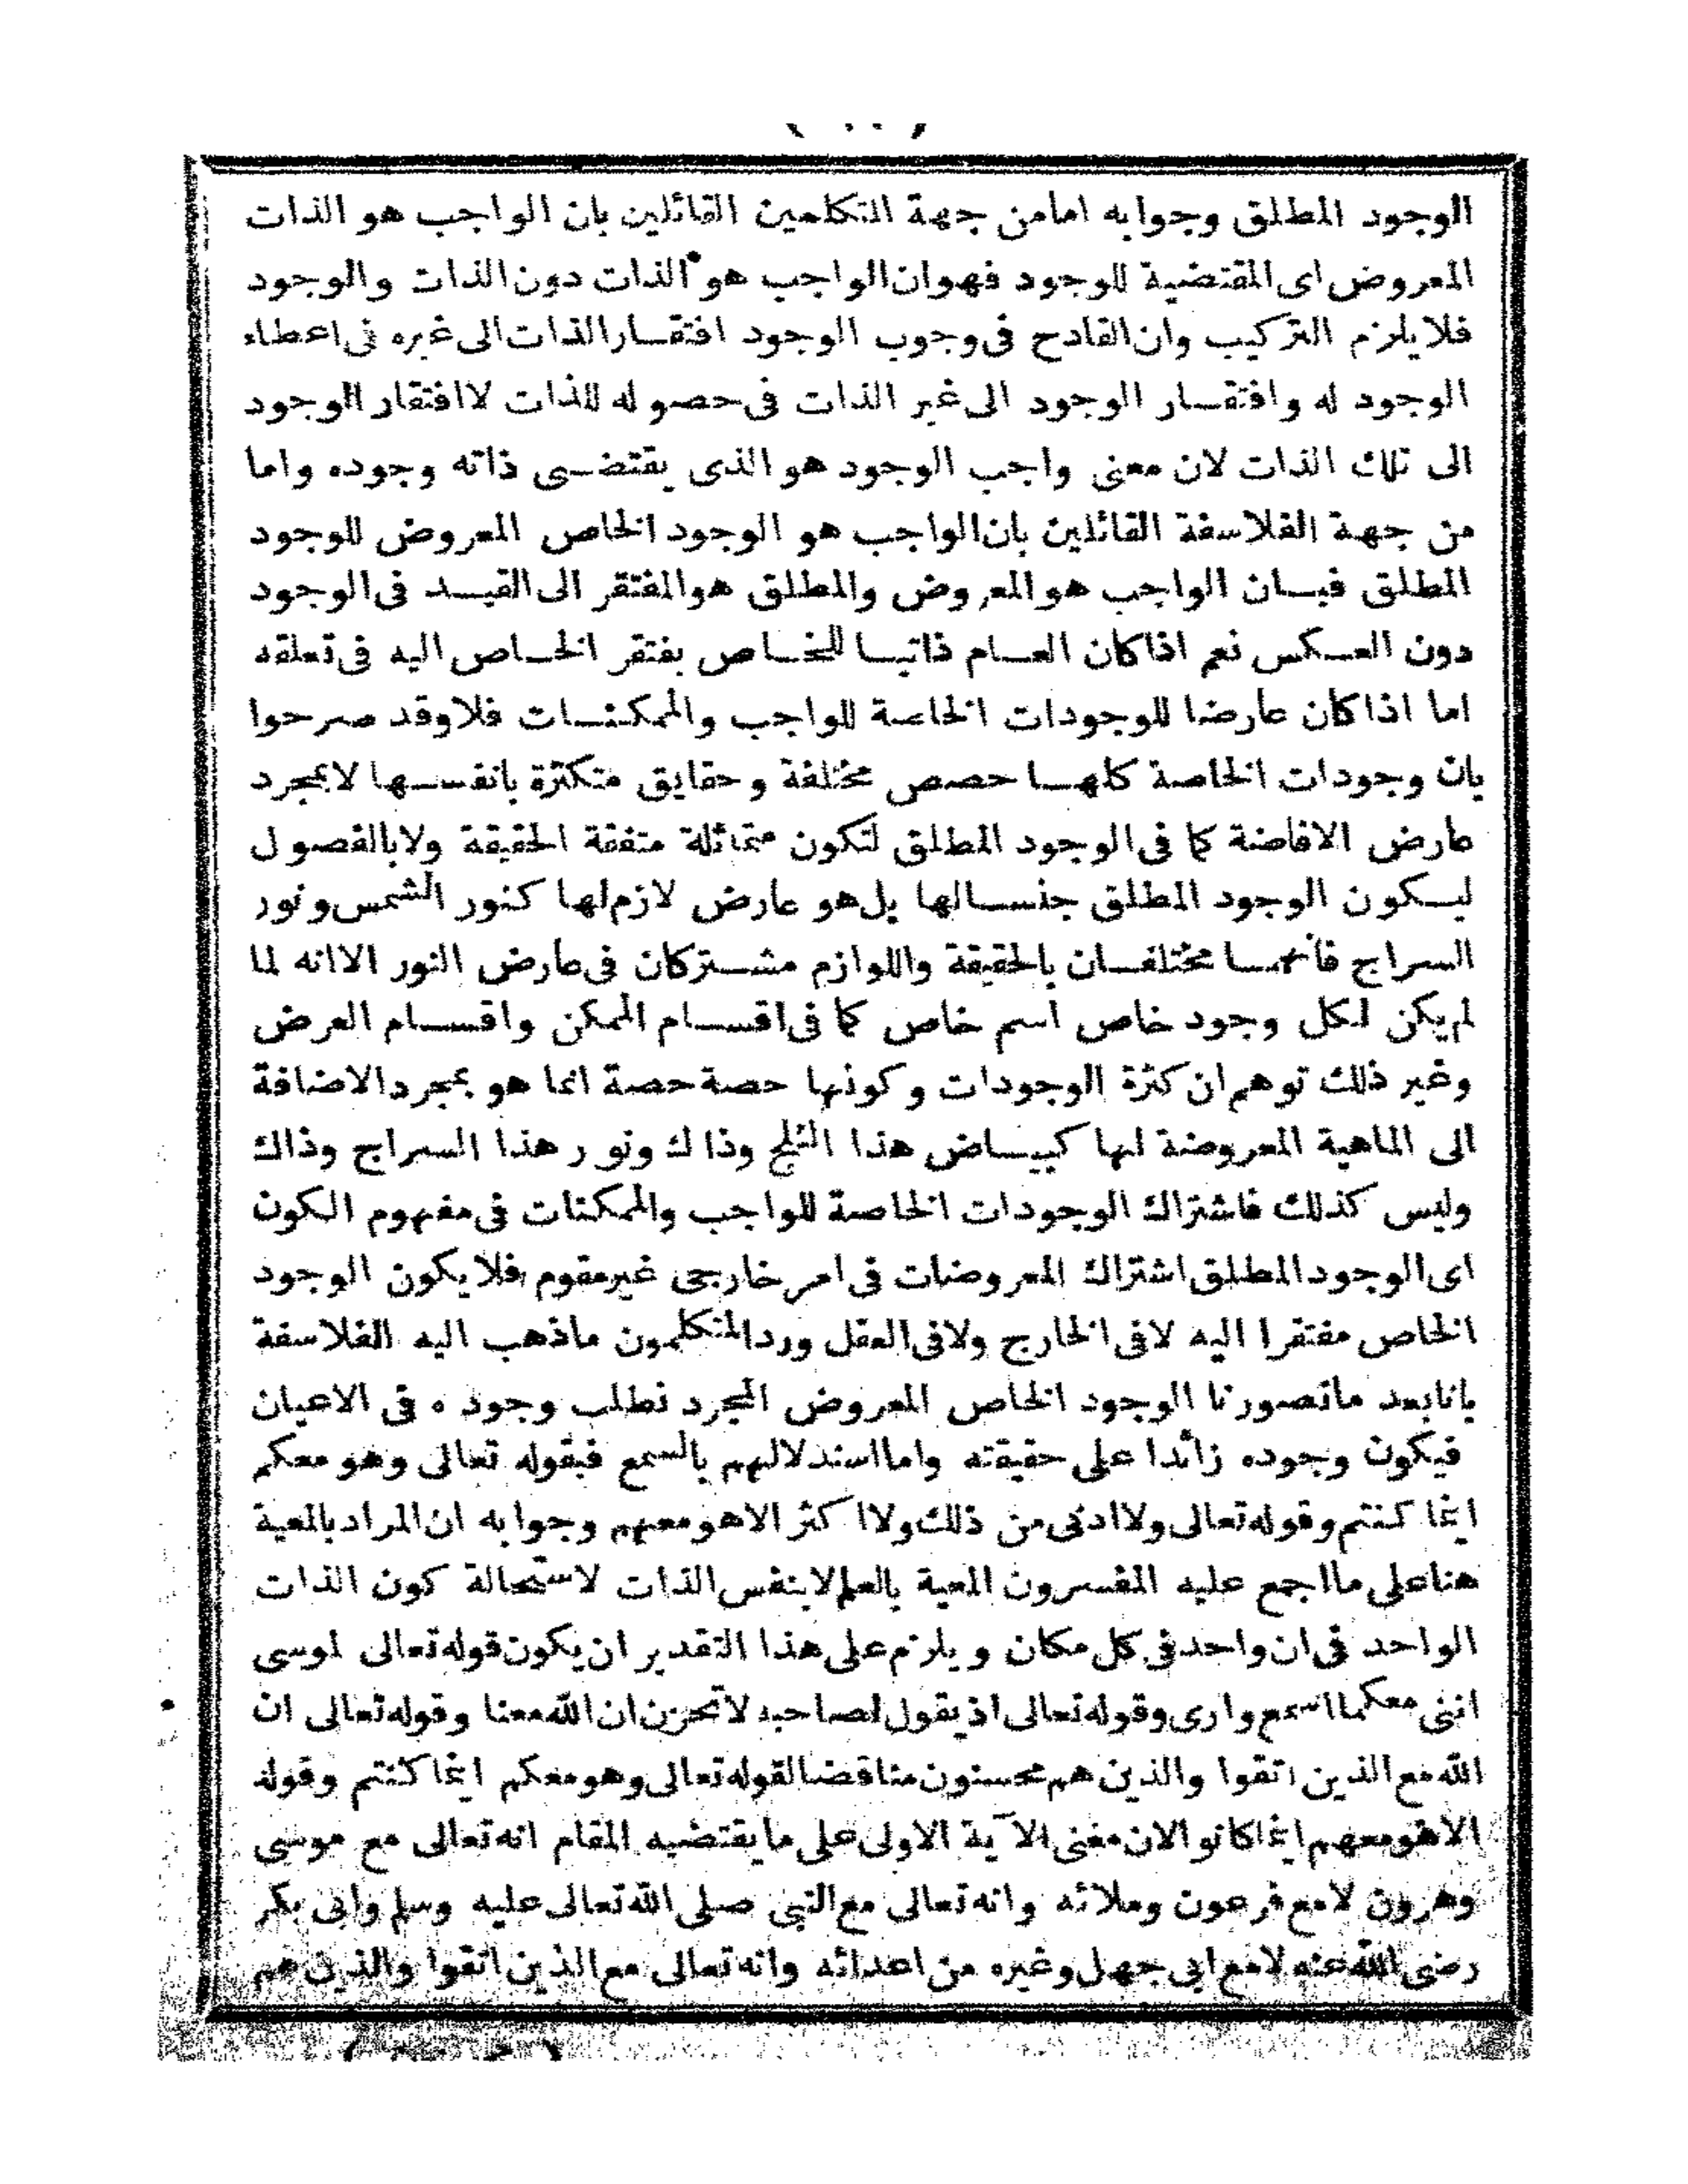 الوجود المطلق وجوابه امامن جهة المتكلمين القائلين بان الواجب هو الذات
المعروض اى المقتضية للوجود فهوان الواجب هو الذات دون الذات والوجود
فلايلزم التركيب وان القادح فى وجوب الوجود افتقار الذات الى غيره فى اعطاء
الوجود له وافتقار الوجود الى غير الذات فى حصوله للذات لاافتقار الوجود
الى تلك الذات لان معنى واجب الوجود هو الذى يقتضى ذاته وجوده واما
من جهة الفلاسفة القائلين بان الواجب هو الوجود الخاص المعروض للوجود
المطلق فبان الواجب هو المعروض والمطلق هو المفتقر الى القيد فى الوجود
دون العكس نعم اذا كان العام ذاتيا للخاص يفتقر الخاص اليه فى تعلقه
اما اذا كان عارضا للوجودات الخاصة للواجب والممكنات فلاوقد صرحوا
بان وجودات الخاصة كلها حصص مختلفة وحقايق متكثرة بانفسها لابمجرد
عارض الافاضة كما فى الوجود المطلق لتكون متماثلة متفقة الحقيقة ولابالفصول
ليكون الوجود المطلق جنسالها بل هو عارض لازم لها كنور الشمس ونور
السراج فأنهما مختلفان بالحقيقة واللوازم مشتركان فى عارض النور الاانه لما
لم يكن لكل وجود خاص اسم خاص كما فى اقسام الممكن واقسام العرض
وغير ذلك توهم ان كثرة الوجودات وكونها حصة حصة انما هو بمجرد الاضافة
الى الماهية المعروضة لها كبياض هذا الثلج وذاك ونور هذا السراج وذاك
وليس كذلك فاشتراك الوجودات الخاصة للواجب والممكنات فى مفهوم الكون
اى الوجود المطلق اشتراك المعروضات فى امر خارجى غير مقوم فلايكون الوجود
الخاص مفتقرا اليه لافى الخارج ولافى العقل ورد المتكلمون ماذهب اليه الفلاسفة
بانابعد ماتصورنا الوجود الخاص المعروض المجرد نطلب وجوده فى الاعيان
فيكون وجوده زائدا على حقيقته واما استدلالهم بالسمع فبقوله تعالى وهو معكم
اينما كنتم وقوله تعالى ولا ادنى من ذلك ولا اكثر الاهو معهم وجوابه ان المراد بالمعية
هنا على مااجمع عليه المفسرون المعية بالعلم لابنفس الذات لاستحالة كون الذات
الواحد فى ان واحد فى كل مكان ويلزم على هذا التقدير ان يكون قوله تعالى لموسى
اننى معكما اسمع وارى وقوله تعالى اذ يقول لصاحبه لاتحزن ان الله معنا وقوله تعالى ان
الله مع الذين اتقوا والذين هم محسنون مناقضا لقوله تعالى وهو معكم اينما كنتم وقوله
الاهو معهم اينما كانوا لان معنى الآية الاولى على مايقتضيه المقام انه تعالى مع موسى
وهرون لامع فرعون وملائه وانه تعالى مع النبى صلى الله تعالى عليه وسلم وابى بكر
رضى الله عنه لامع ابى جهل وغيره من اعدائه وانه تعالى مع الذين اتقوا والذين هم